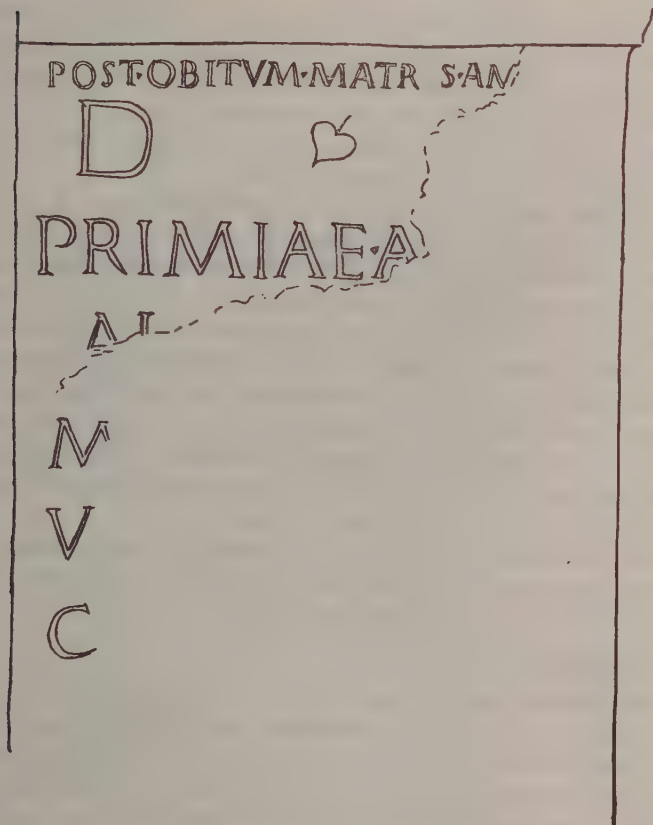 POST·OBITVM·MATR S·AN
D
PRIMIAE·A
M
V
C